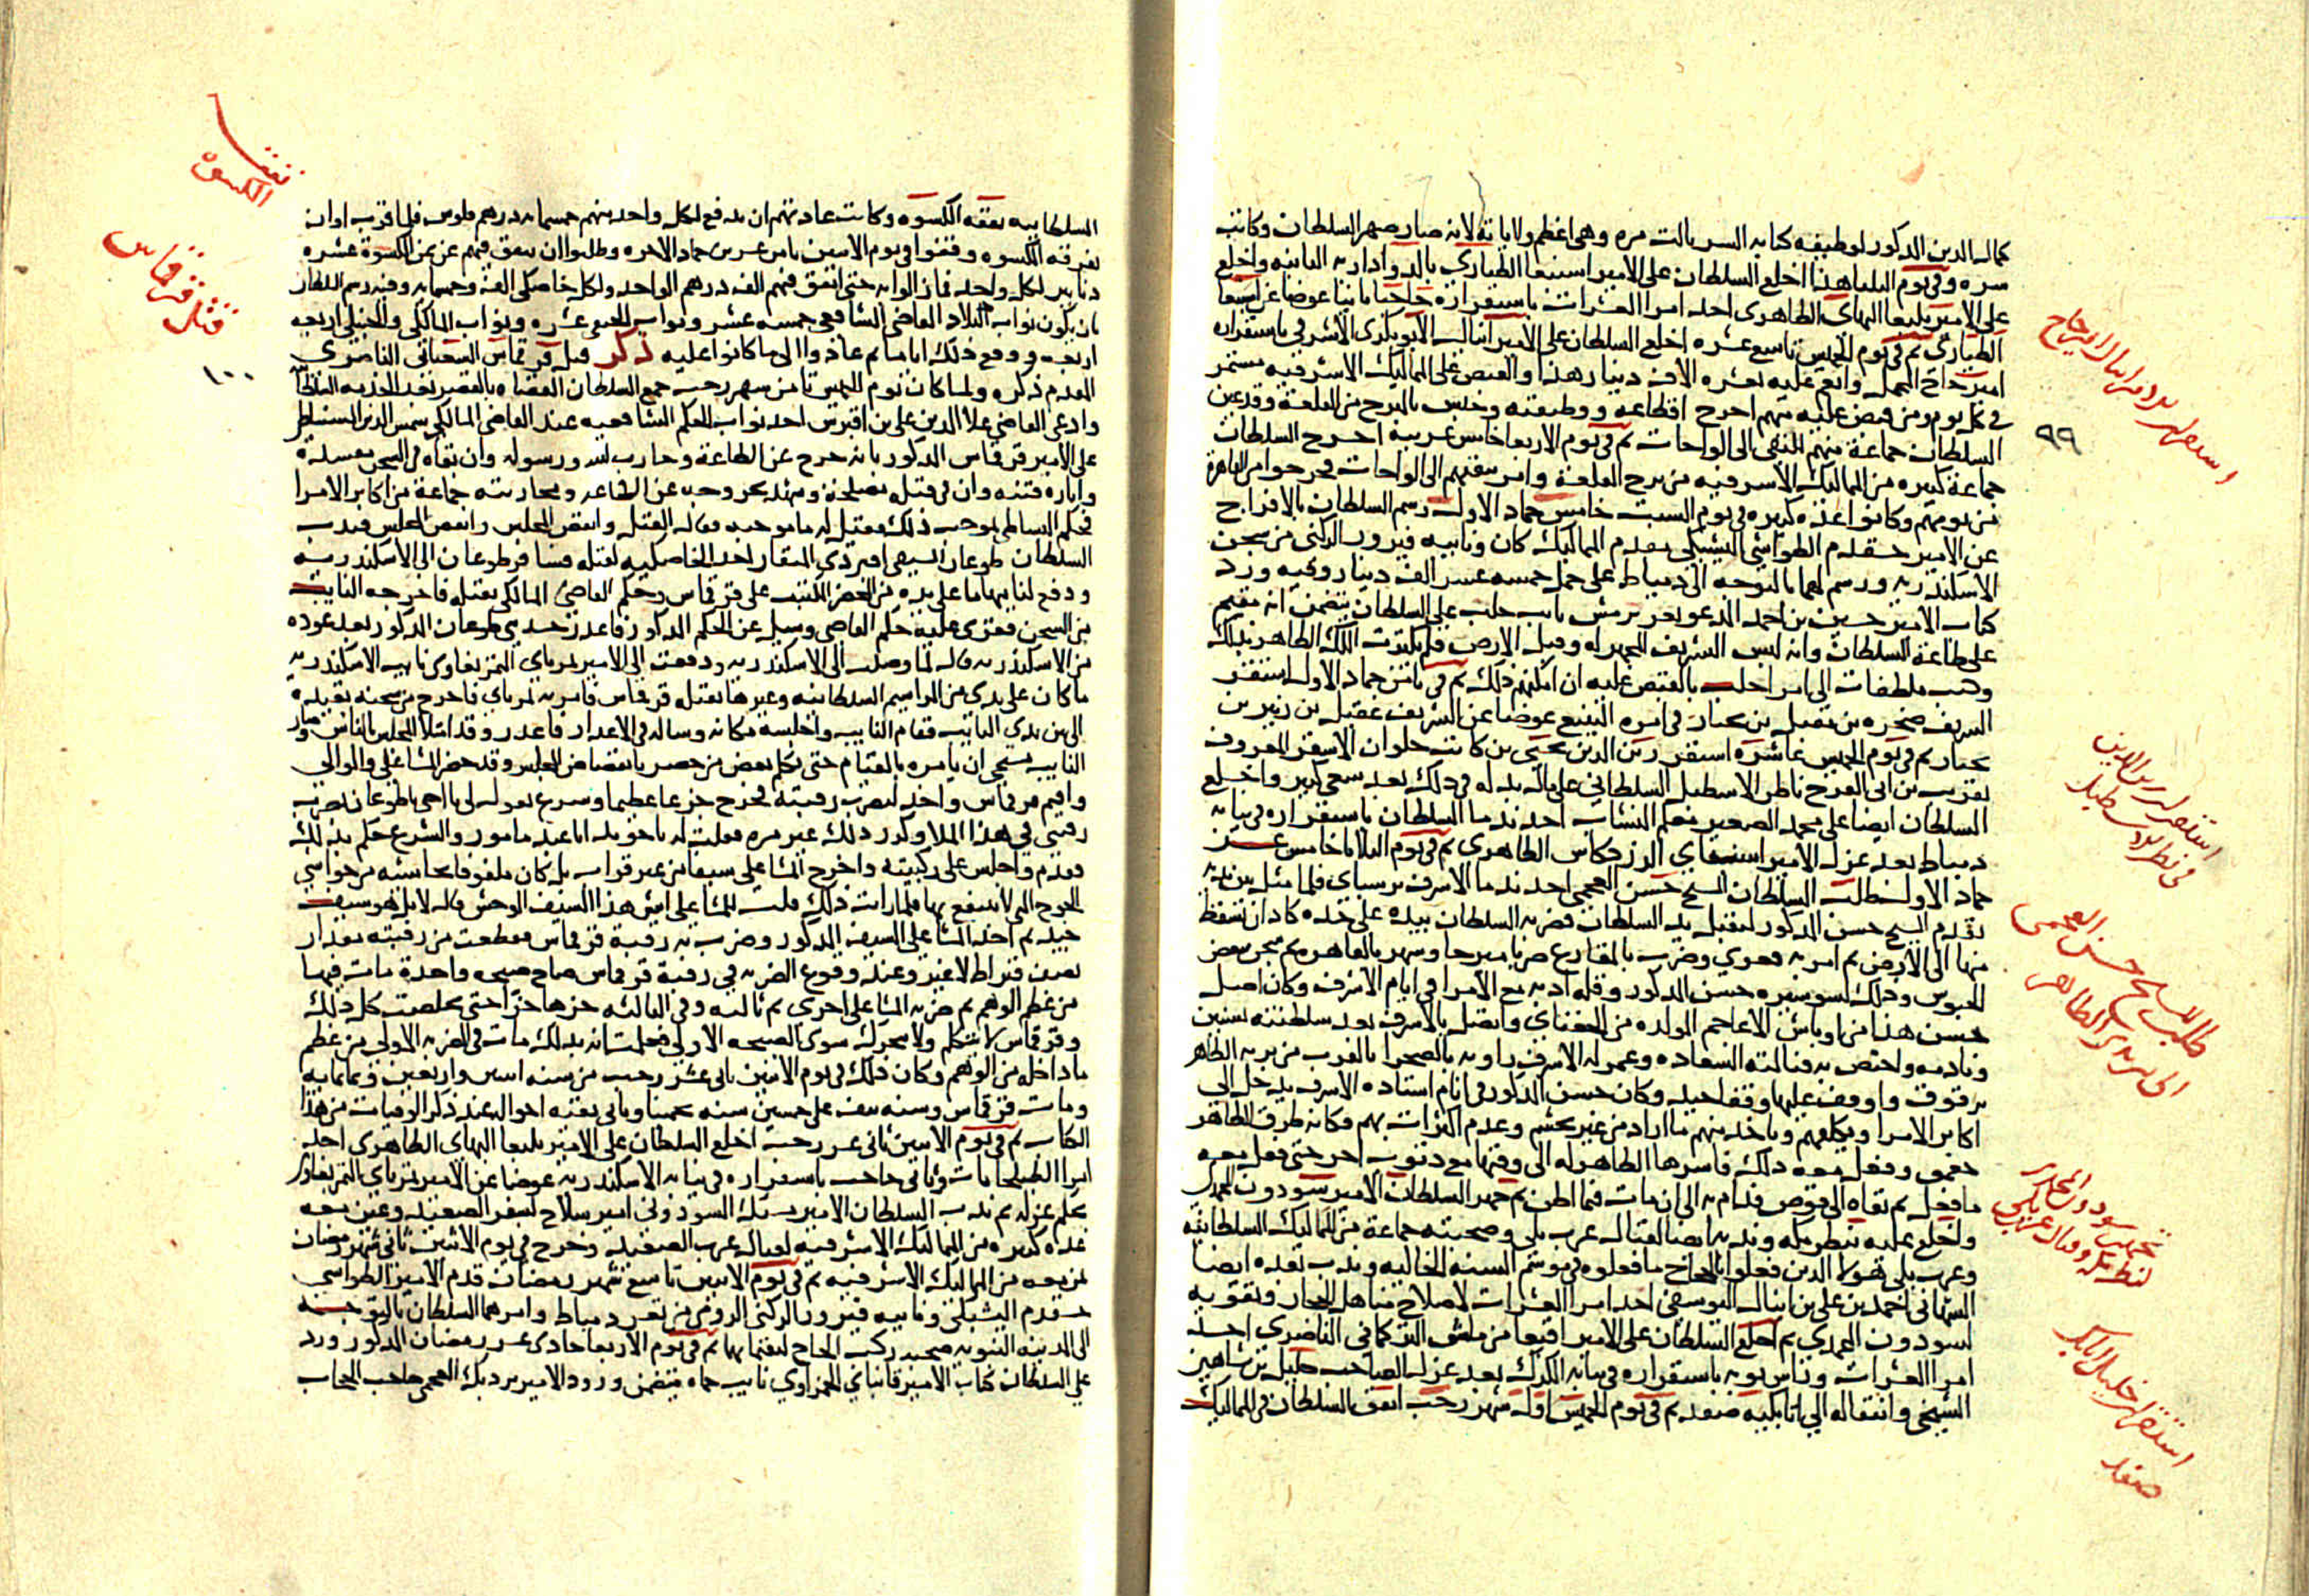 كمال الدين المذكور لوظيفه كتابه السر ثالث مره وهي اعظم ولاياته لانه صار صهر السلطان وكانت
سره وفي يوم الثلثا هذا اخلع السلطان على الامير اسنبغا الطياري بالدواداريه الثانيه واخلع
على الامير يلبغا البهاي الظاهري احد امرا العشرات باستقراره حاجبا ثانيا عوضا عن اسنبغا
الطياري ثم في يوم الخميس تاسع عشره اخلع السلطان على الامير اينال الابوبكري الاشرفي باستقراره
امير حاج المحمل وانعم عليه بعشره الاف دينار هذا والقبض على المماليك الاشرفيه مستمر
في كل يوم ومن قبض عليه منهم اخرج اقطاعه ووظيفته وحبس بالبرج من القلعة وقد عين
السلطان جماعة منهم للنفي الى الواحات ثم في يوم الاربعا خامس عشرينه اخرج السلطان
جماعة كبيره من المماليك الاشرفيه من برج القلعة وامر بنفيهم الى الواحات فخرجوا من القاهرة
من يومهم وكانوا عده كبيره في يوم السبت خامس جماد الاول رسم السلطان بالافراج
عن الامير خشقدم الطواشي اليشبكي مقدم المماليك كان ونايبه فيروز الركني من سجن
الاسكندريه ورسم لهما بالتوجه الى دمياط على حمل خمسه عشر الف دينار وفيه ورد
كتاب الامير حسين بن احمد المدعو تغري برمش نايب حلب على السلطان يتضمن انه مقيم
على طاعة السلطان وانه لبس التشريف المجهز له وقبل الارض فلم يكترث الملك الظاهر بذلك
وكتب ملطفات الى امرا حلب بالقبض عليه ان امكنهم ذلك ثم في ثامن جماد الاول استقر
الشريف صخره بن مقبل بن نخبار في امره الينبع عوضا عن الشريف عقيل بن زبير بن
نخبار ثم في يوم الخميس عاشره استقر زين الدين يحيى بن كاتب حلوان الاشقر المعروف
بقريب بن ابي الفرج ناظر الاسطبل السلطاني على مال بذله في ذلك بعد سعي كبير واخلع
السلطان ايضا على محمد الصغير معلم النشاب احد ندما السلطان باستقراره في نيابه
دمياط بعد عزل الامير اسنباي الزردكاش الظاهري ثم في يوم الثلاثا خامس عشر
جماد الاول طلب السلطان الشيخ حسن العجمي احد ندما الاشرف برسباي فلما مثل بين يديه
تقدم الشيخ حسن المذكور ليقبل يد السلطان فضربه السلطان بيده على خده كاد ان تسقط
منها الى الارض ثم امر به فعري وضرب بالمقارع ضربا مبرحا وشهر بالقاهره ثم سجن ببعض
الحبوس وذلك لسو سيره حسن المذكور وقله ادبه مع الامرا في ايام الاشرف وكان اصل
حسن هذا من اوباش الاعاجم المولده من الجغتاي واتصل بالاشرف بعد سلطنته بسنين
ونادمه واختص به فنالته السعاده وعمر له الاشرف زاويه بالصحرا بالقرب من تربه الظاهر
برقوق واوقف عليها وقفا جيدا وكان حسن المذكور في ايام استاده الاشرف يدخل الى
اكابر الامرا ويكلفهم وياخذ منهم ما اراد من غير تحشم وعدم اكتراث بهم فكانه طرق الظاهر
جقمق وفعل معه ذلك فاسرها الظاهر له الى وقتها مع ذنوب اخر حتى فعل معه
ما فعل ثم نفاه الى قوص فدام به الى ان مات فيما اظن ثم جهز السلطان الامير سودون المحمدي
واخلع عليه بنظر مكه وندبه ايضا لقتال عرب بلي وصحبته جماعة من المماليك السلطانيه
وعرب بلي هولا الذين فعلوا بالحاج ما فعلوه في موسم السنه الخاليه وندب بعده ايضا
الشهابي احمد بن علي بن اينال اليوسفي احد امرا العشرات لاصلاح مناهل الحجاز وتقويه
لسودون المحمدي ثم اخلع السلطان على الامير اقبغا من مامش التركماني الناصري احد
امرا العشرات وراس نوبه باستقراره في نيابه الكرك بعد عزل الصاحب خليل بن شاهين
الشيخي وانتقاله الى اتابكيه صفد ثم في يوم الخميس اول شهر رجب انفق السلطان في المماليك
استقرار الامير اينال امير حاج
٩٩
استقرار زين الدين
في نظر الاسطبل
طلب الشيخ حسن العجمي
الى بين يدي الظاهر
تجهيز سودون المحمدي
لنظر مكه وقتال عرب بلي
استقرار خليل اتابك
صفد
السلطانيه نفقه الكسوه وكانت عادتهم ان يدفع لكل واحد منهم خمسمايه درهم فلوس فلما قرب اوان
تفرقه الكسوه وقفوا في يوم الاثنين ثامن عشرين جماد الاخره وطلبوا ان ينفق فيهم عن ثمن الكسوة عشره
دنانير لكل واحد فما زالوا به حتى انفق فيهم الف درهم الواحد ولكل خاصكي الف وخمسمايه وفيه رسم السلطان
بان يكون نواب البلاد القاضي الشافعي خمسه عشر ونواب الحنفي عشره ونواب المالكي والحنبلي اربعه
اربعه ووقع ذلك اياما ثم عادوا الى ما كانوا عليه ذكر قتل قرقماس الشعباني الناصري
المقدم ذكره ولما كان يوم الخميس ثامن شهر رجب جمع السلطان القضاه بالقصر بعد الخدمه السلطانيه
وادعى القاضي علا الدين علي بن اقبرس احد نواب الحكم الشافعيه عند القاضي المالكي شمس الدين البساطي
على الامير قرقماس المذكور بانه خرج عن الطاعة وحارب لله ورسوله وان بقاه في السجن مفسدة
واثاره فتنه وان في قتله مصلحة وشهد بخروجه عن الطاعه ومحاربته جماعة من اكابر الامرا
فحكم البساطي بموجب ذلك فقيل له ما موجبه فقال القتل وانفض المجلس فندب
السلطان طوغان السيفي اقبردي المنقار احد الخاصكيه لقتله فسافر طوغان الى الاسكندريه
ودفع لنايبها ما على يده من المحضر المكتتب على قرقماس وحكم القاضي المالكي بقتله فاخرجه النايب
من السجن فقرى عليه حكم القاضي وسيل عن الحكم المذكور فاعذر حدثني طوغان المذكور بعد عوده
من الاسكندريه قال لما وصلت الى الاسكندريه ودفعت الى الامير تمرباي التمربغاوي نايب الاسكندريه
ما كان على يدي من المراسيم السلطانيه وغيرها بقتل قرقماس فامر به تمرباي فاخرج من سجنه بقيده
الى بين يدي النايب فقام النايب واجلسه مكانه وساله في الاعذار فاعذر وقد امتلا المجلس بالناس وصار
النايب يستحي ان يامره بالقيام حتى تكلم بعض من حضر بانفضاض المجلس وقد حضر المشاعلي والوالي
واقيم قرقماس واخذ ليضرب رقبته فجزع جزعا عظيما وشرع يقول لي يا اخي يا طوغان تضرب
رقبتي في هذا الملا وكرر ذلك غير مره فقلت له يا خوند انا عبد مامور والشرع حكم بذلك
فقدم واجلس على ركبتيه واخرج المشاعلي سيفا من غير قراب بل كان ملفوفا بحاشيه من حواشي
الجوخ التي لا ينتفع بها فلما رايت ذلك قلت للمشاعلي ايش هذا السيف الوحش قال لا بل هو سيف
جيد ثم اخذ المشاعلي السيف المذكور وضرب به رقبة قرقماس فقطعت من رقبته مقدار
نصف قيراط لا غير وعند وقوع الضربه في رقبة قرقماس صاح صيحه واحدة مات فيها
من عظم الوهم ثم ضربه المشاعلي اخرى ثم ثالثه وفي الثالثه حزها حزا حتى تخلصت كل ذلك
وقرقماس لا يتكلم ولا يتحرك سوى الصيحه الاولى فعلمت انه بذلك مات في الضربه الاولى من عظم
ما داخله من الوهم وكان ذلك في يوم الاثنين ثاني عشر رجب من سنه اثنين واربعين وثمانمايه
ومات قرقماس وسنه نيف على خمسين سنه تخمينا وياتي بقيه احواله عند ذكر الوفيات من هذا
الكتاب ثم في يوم الاثنين ثاني عشر رجب اخلع السلطان على الامير يلبغا البهاي الظاهري احد
امرا الطبلخانات وثاني حاجب باستقراره في نيابه الاسكندريه عوضا عن الامير تمرباي التمربغاوي
بحكم عزله ثم ندب السلطان الامير يشبك السودوني امير سلاح لسفر الصعيد وعين معه
عده كبيره من المماليك الاشرفيه لقتال عرب الصعيد وخرج في يوم الاثنين ثاني شهر رمضان
بمن معه من المماليك الاشرفيه ثم في يوم الاثنين تاسع شهر رمضان قدم الامير الطواشي
خشقدم اليشبكي ونايبه فيروز الركني الرومي من ثغر دمياط وامرهما السلطان بالتوجه
الى المدينه النبويه صحبه ركب الحاج ليقيما بها ثم في يوم الاربعا حادي عشر رمضان المذكور ورد
على السلطان كتاب الامير قانباي الحمزاوي نايب حماه يتضمن ورود الامير بردبك العجمي حاجب الحجاب
نفقة
الكسوة
قتل قرقماس
١٠٠